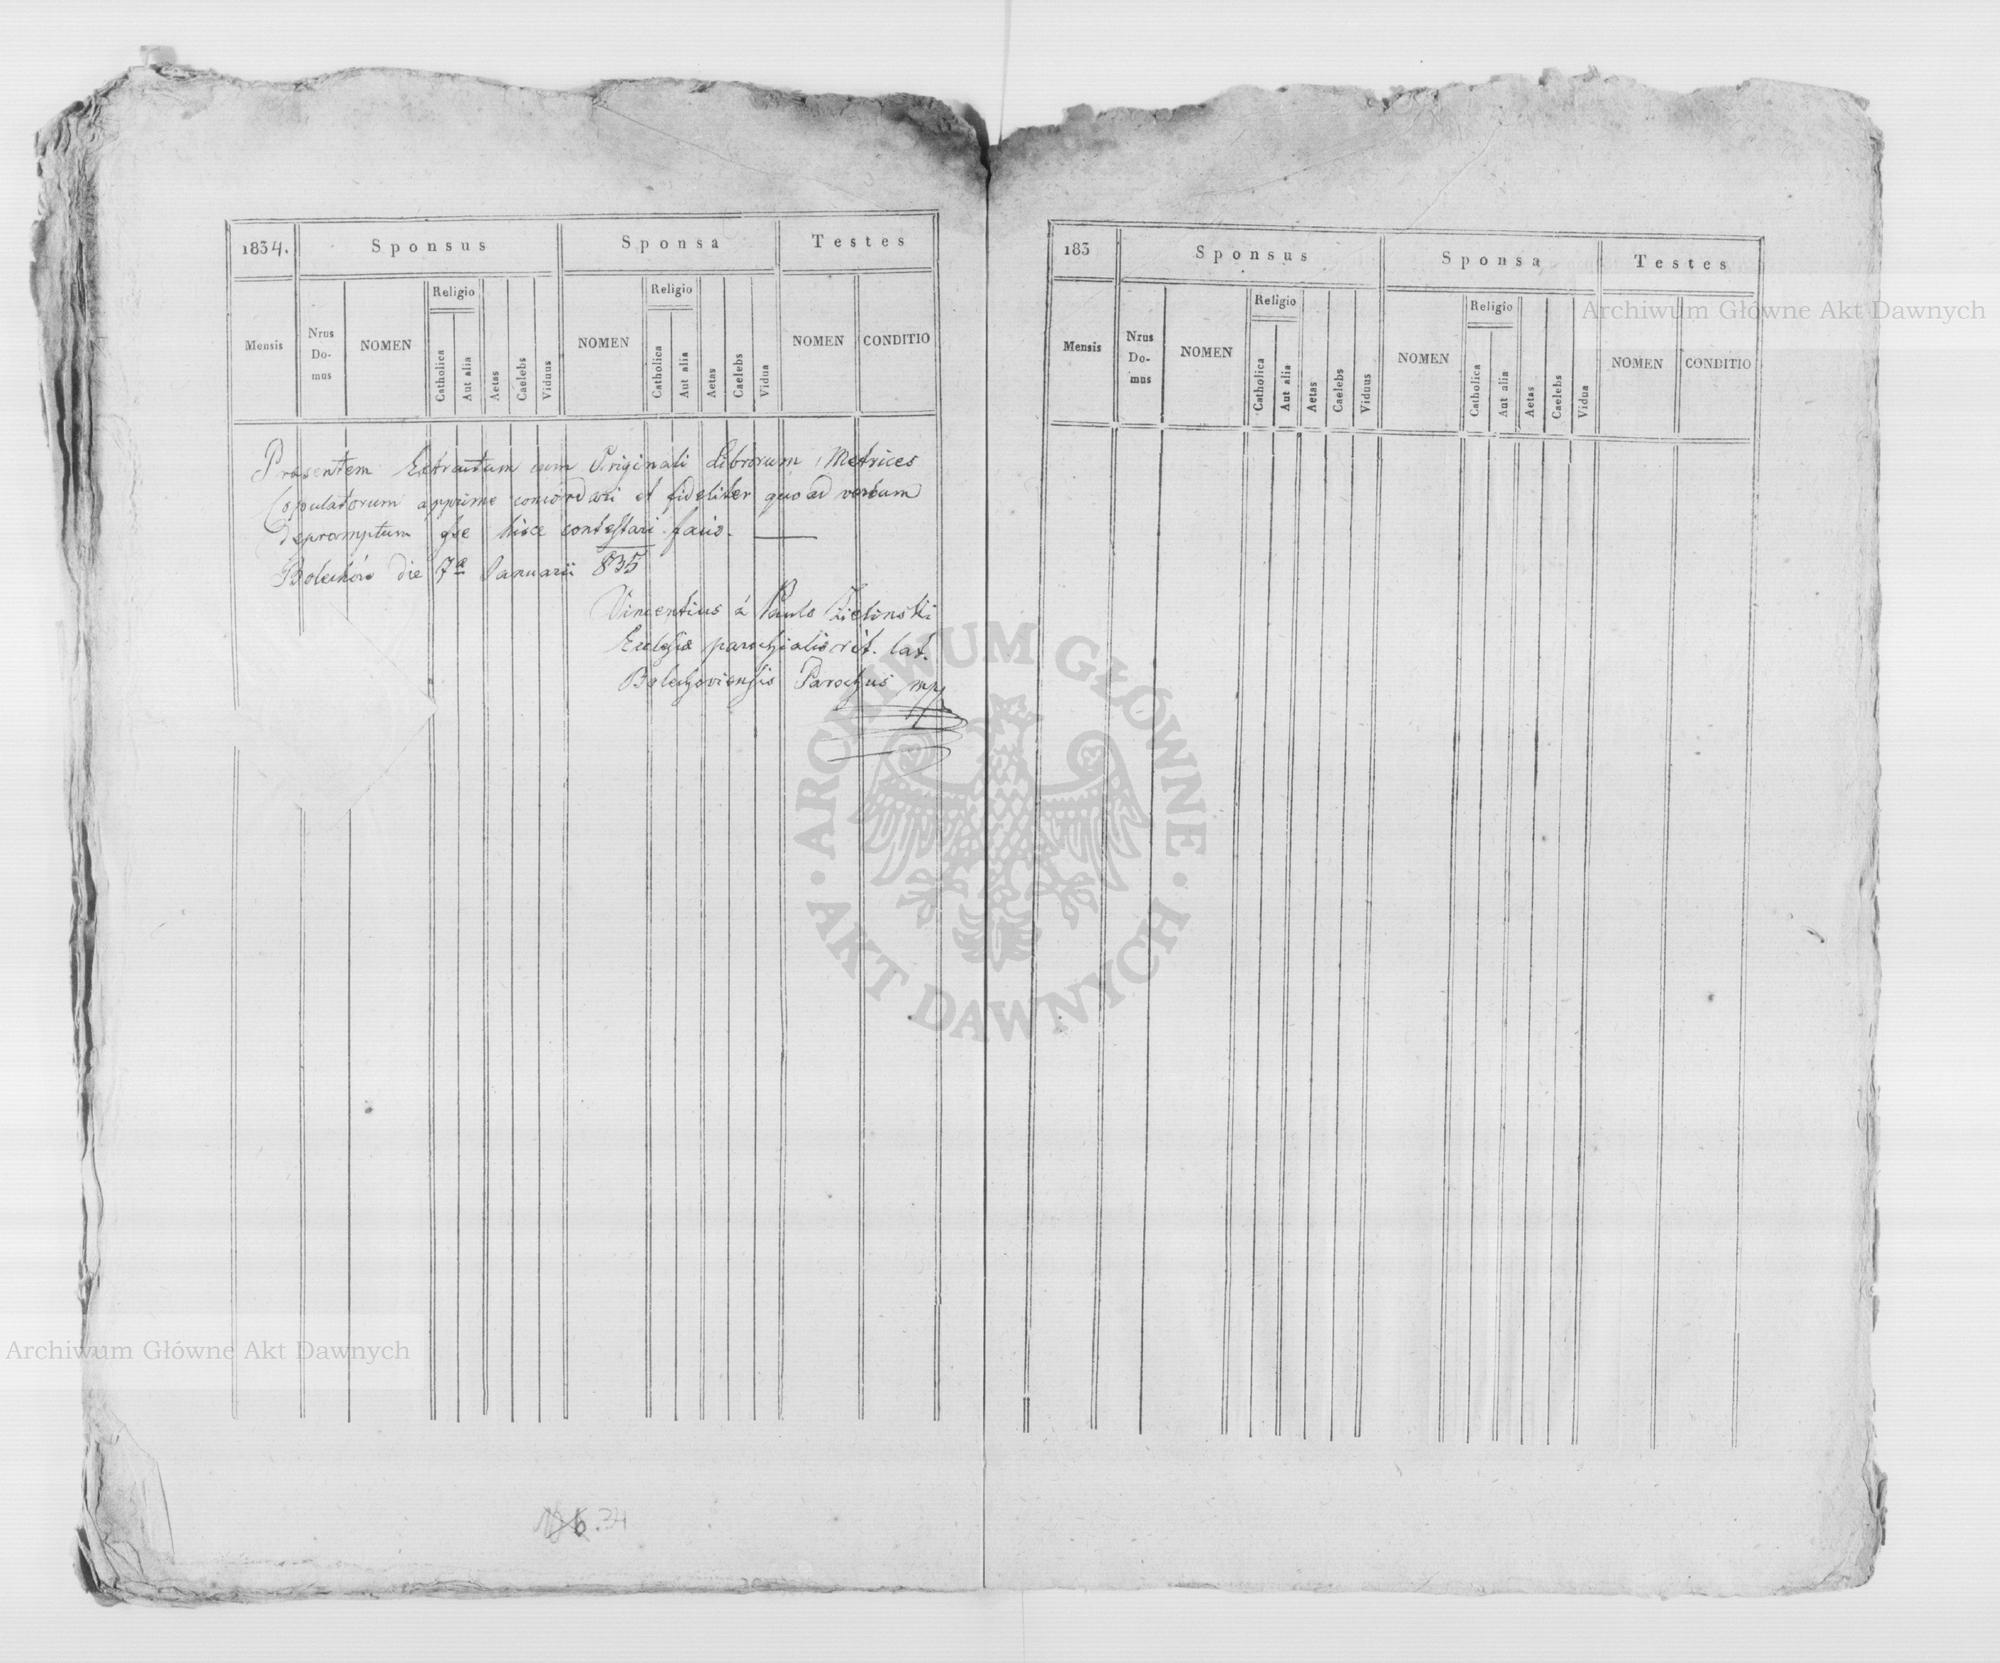 1834. Sponsus Sponsa Testes
Mensis Nrus Do- mus NOMEN Religio Catholica Aut alia Aetas Caelebs Viduus NOMEN Religio Catholica Aut alia Aetas Caelebs Vidua NOMEN CONDITIO
Praesentem Extractum cum Originali Librorum Metrices
Copulatorum apprime concordari et fideliter quo ad verbum
depromptum hisce contestari facio.
Bolechów die 7ª Januarii 835
Vincentius á Paulo Zielinski
Ecclesiæ parochialis rit. lat.
Bolechoviensis Parochus mp
34
183 Sponsus Sponsa Testes
Mensis Nrus Do- mus NOMEN Religio Catholica Aut alia Aetas Caelebs Viduus NOMEN Religio Catholica Aut alia Aetas Caelebs Vidua NOMEN CONDITIO
Archiwum Główne Akt Dawnych
ARCHIWUM GŁÓWNE · AKT DAWNYCH ·
Archiwum Główne Akt Dawnych